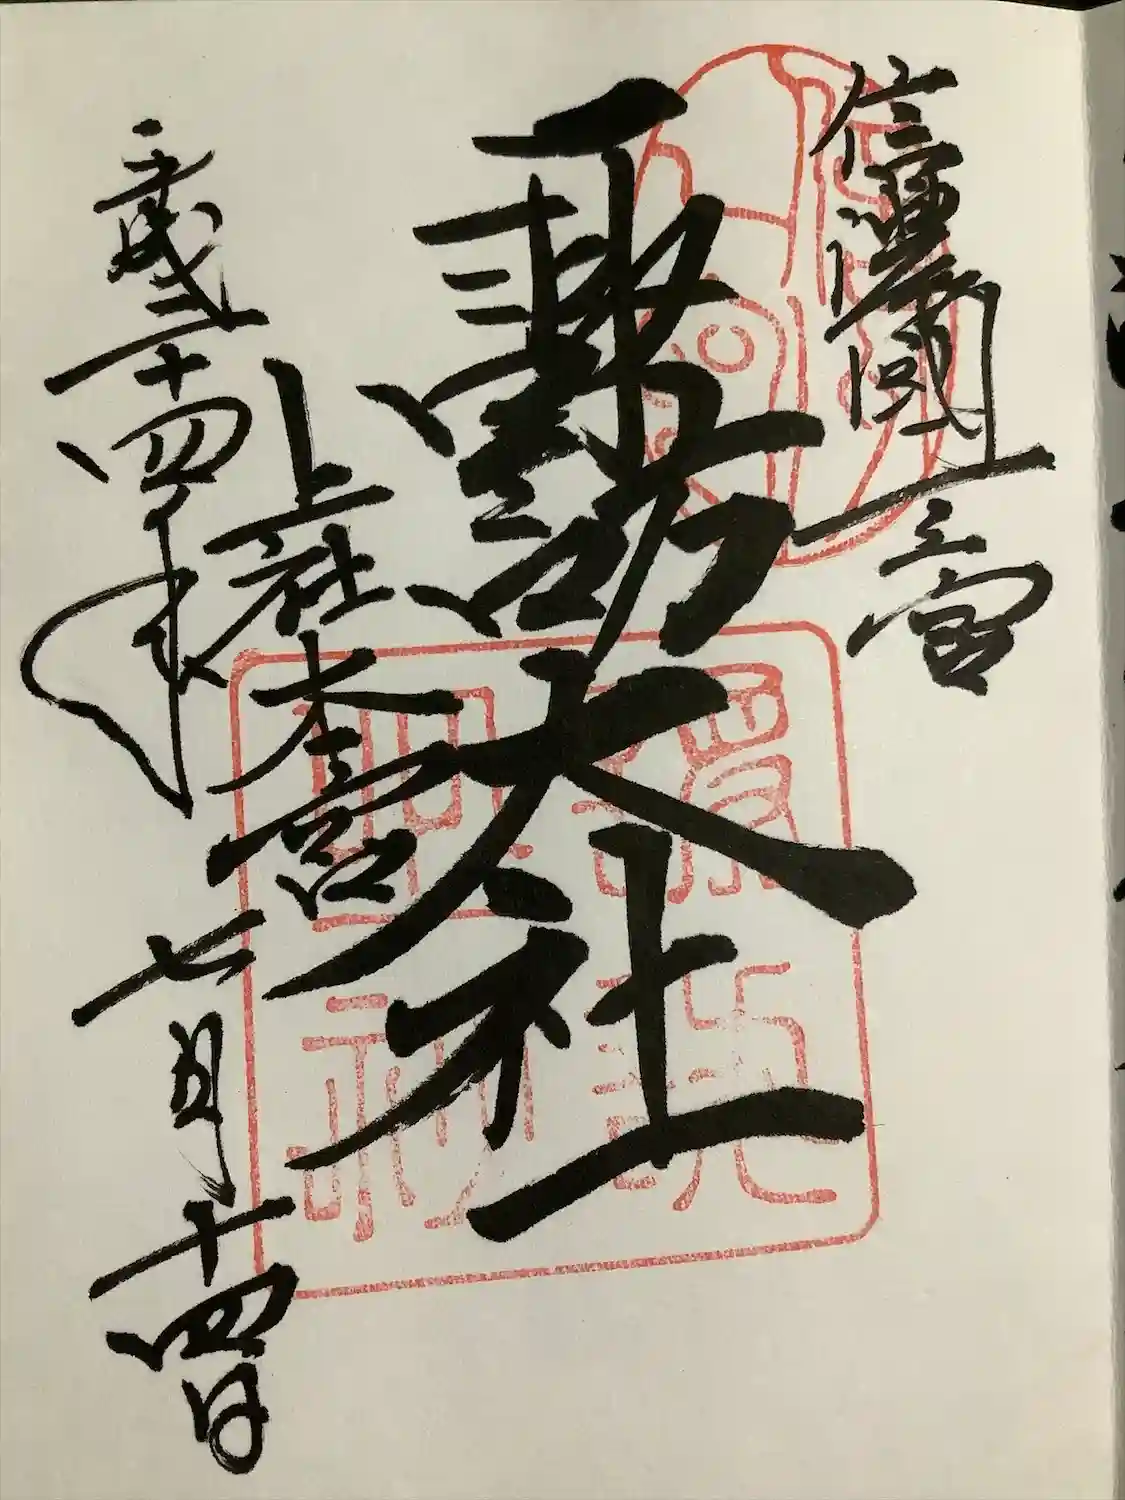 信濃國一之宮
諏訪大社
上社本宮
平成二十四年七月十四日